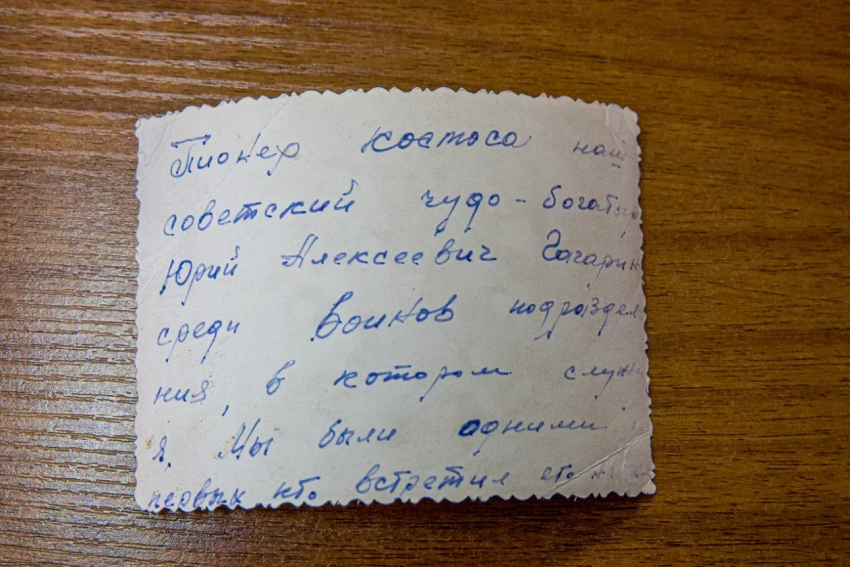 Пионер космоса наш
советский чудо-богатыр
Юрий Алексеевич Гагарин
среди воинов подразделе
ния, в котором служи
я. Мы были одними
первых кто встретил его